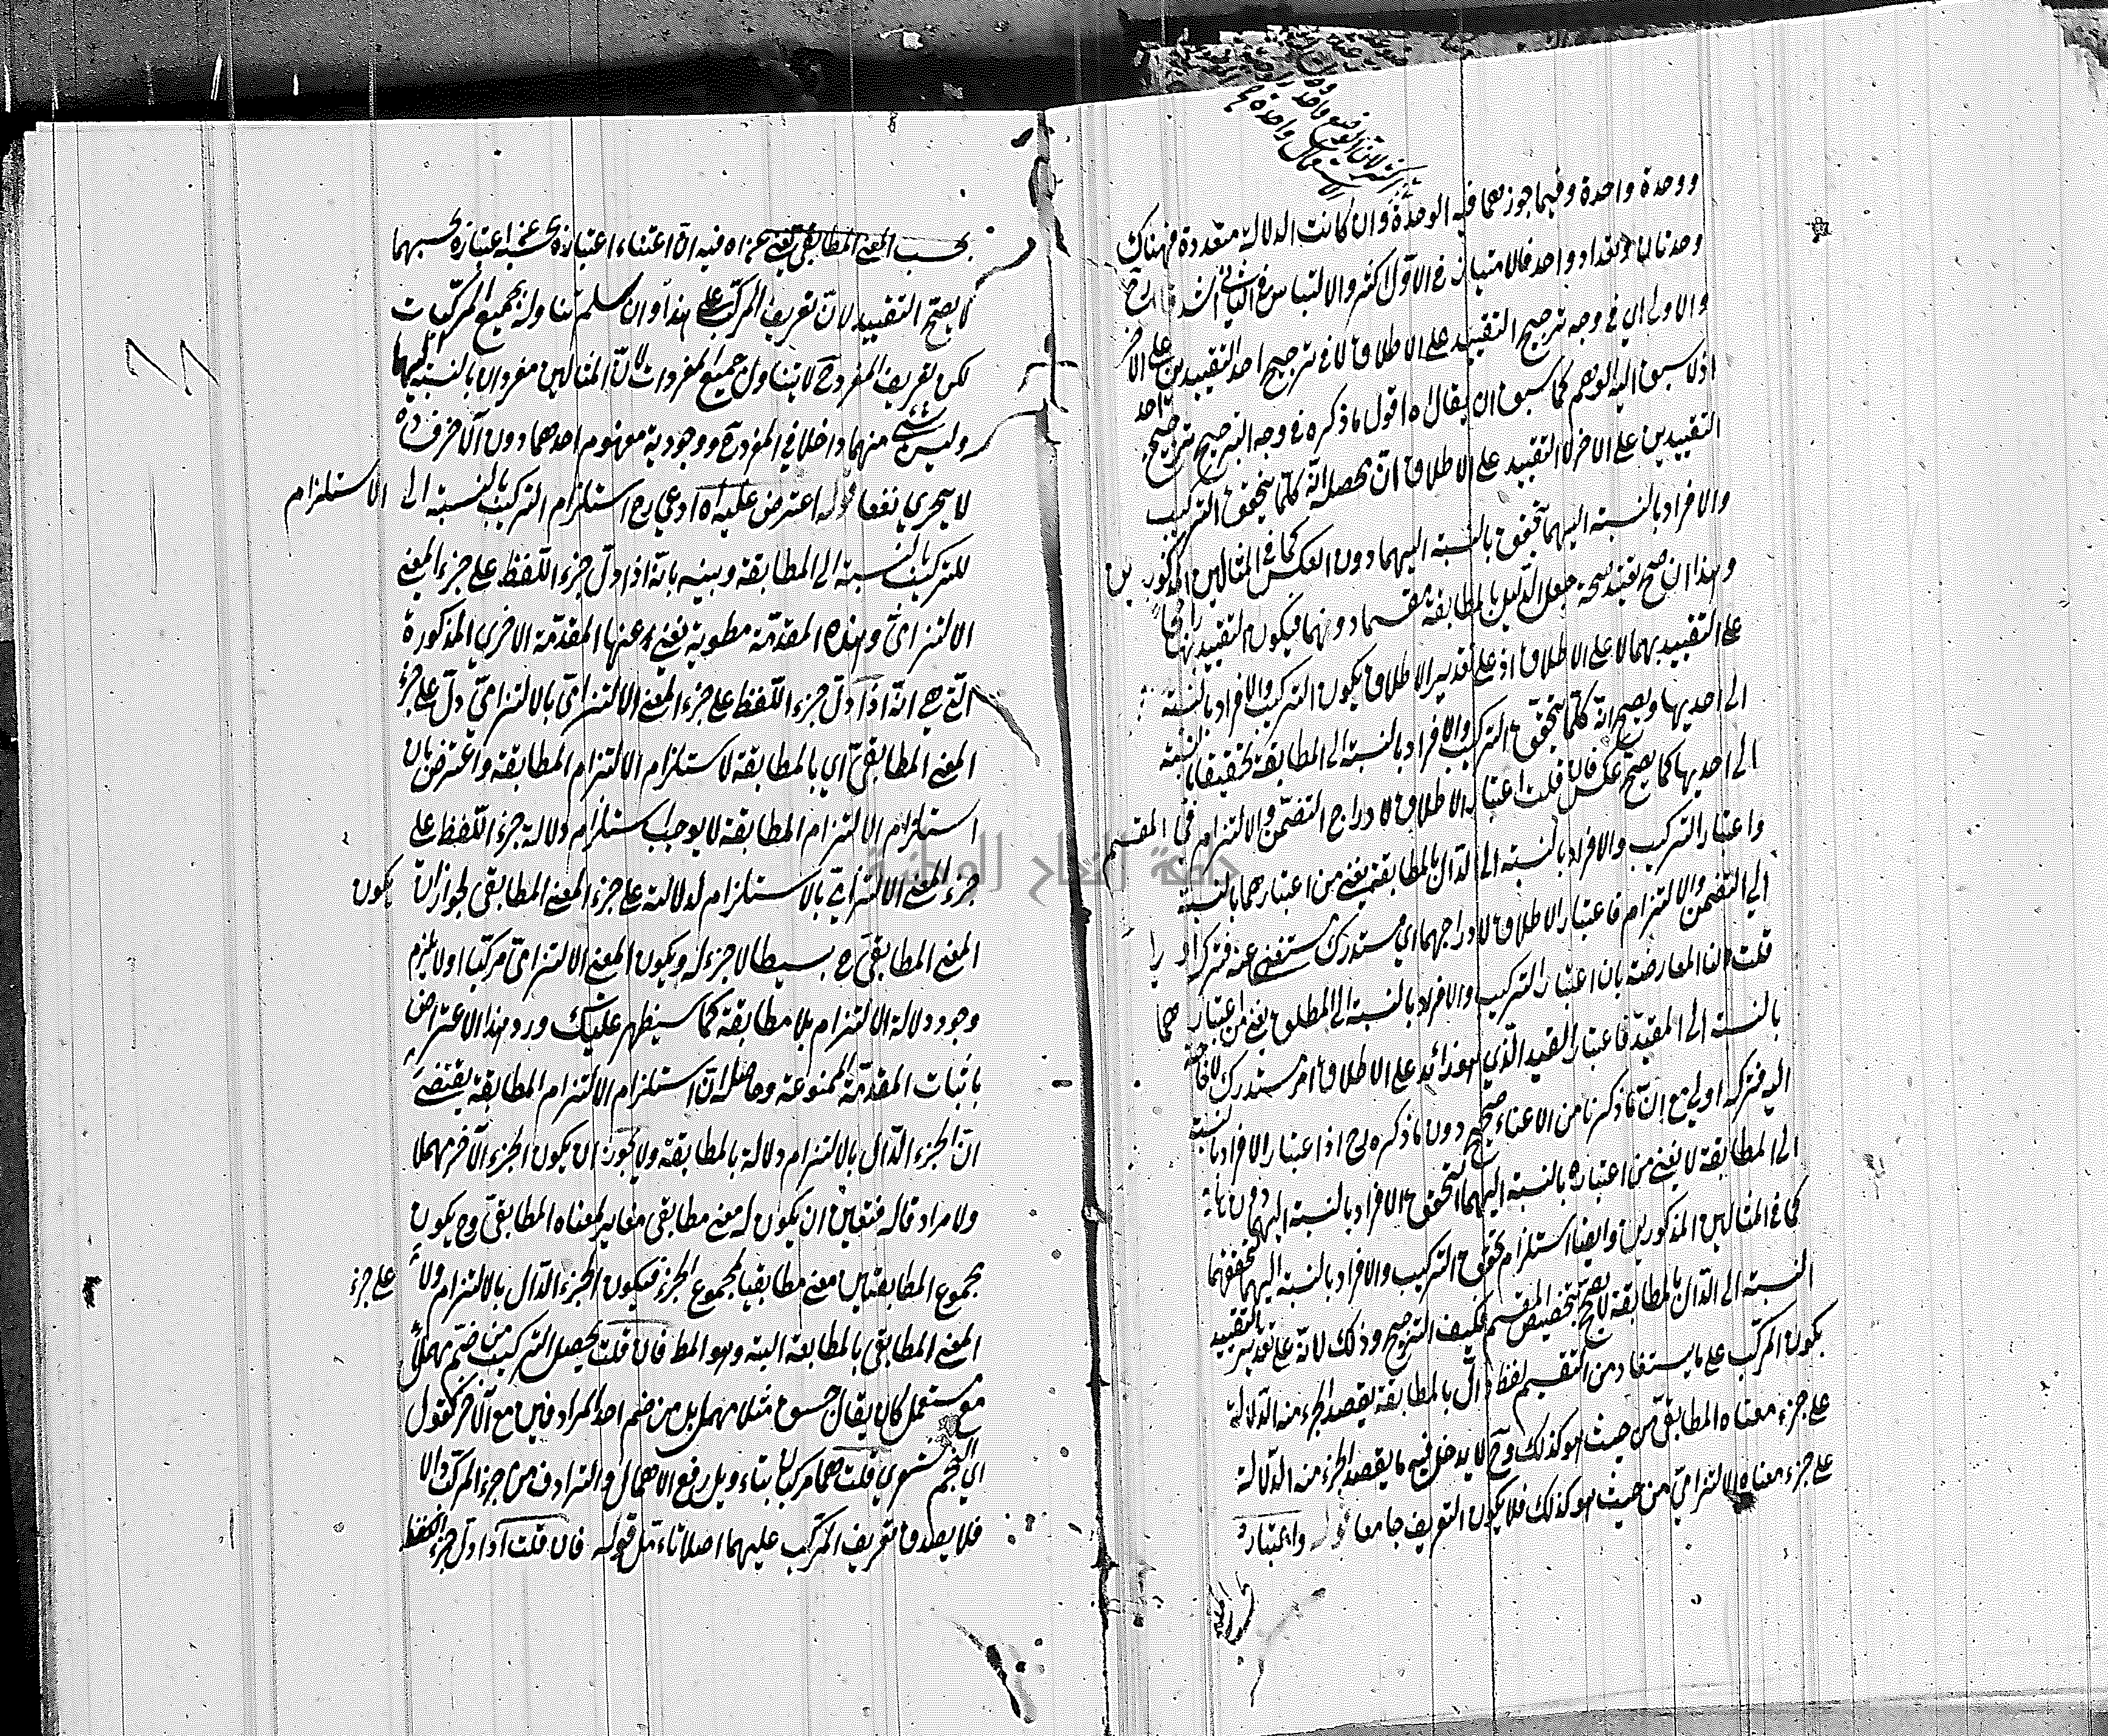 ووحدة واحدة وفيما جوزهما فيه الوحدة وان كانت الدلالة متعددة فهناك
وحدتان وتعداد واحد فالامتياز في الاول اكثر والالتباس في الثاني اشد
والاولى اي في وجه ترجيح التقييد على الاطلاق لا في ترجيح احد التقييدين على الآخر
اذ لا سبق اليه الوهم كما سبق ان يقال ه اقول ما ذكره في وجه الترجيح ترجيح احد
التقييدين على الآخر لا التقييد على الاطلاق ان محصله انه كلما يتحقق التركيب
والافراد بالنسبة اليهما تحقق بالنسبة اليهما دون العكس كما في المثالين المذكورين
وهذا ان صح يفيد صحة جعل الدليل بالمطابقة مقسما دونهما فيكون التقييد بها راجحا
على التقييد بهما لا على الاطلاق اذ على تقدير الاطلاق يكون التركيب والافراد بالنسبة
الى احديها ويصح انه كلما يتحقق التركيب والافراد بالنسبة الى المطابقة تحققا بالنسبة
الى احديها كما يصح عكس فان قلت اعتبار الاطلاق لادراج التضمن والالتزام في المقسم
واعتبار التركيب والافراد بالنسبة الى الدال بالمطابقة يغني من اعتبارهما بالنسبة
الى التضمن والالتزام فاعتبار الاطلاق لادراجهما اي مستدرك مستغنى عنه فتركه اولى
قلت لنا المعارضة بان اعتبار التركيب والافراد بالنسبة الى المطلق يغني من اعتبارهما
بالنسبة الى المقيد فاعتبار القيد الذي هو زائد على الاطلاق امر مستدرك لا حاجة
اليه فتركه اولى مع ان ما ذكرنا من الاغناء صحيح دون ما ذكره ره اذ اعتبار الافراد بالنسبة
الى المطابقة لا يغني من اعتباره بالنسبة اليهما لتحقق الافراد بالنسبة اليهما دونها
كما في المثالين المذكورين وايضا استلزام تحقق التركيب والافراد بالنسبة اليهما لتحققهما
بالنسبة الى الدال بالمطابقة لا يصحح تخصيص المقسم فكيف الترجيح وذلك لانه على تقدير التقييد
يكون المركب على ما يستفاد من التقسيم لفظ دال بالمطابقة يقصد بالجزء منه الدلالة
على جزء معناه المطابقي من حيث هو كذلك وح لا يدخل فيه ما يقصد بالجزء منه الدلالة
على جزء معناه الالتزامي من حيث هو كذلك فلا يكون التعريف جامعا قوله واعتباره
بحسب المعنى المطابقي يغني عن اه فيه ان اغتناء اعتباره بحسبه عن اعتباره بحسبهما
لا يصحح التقييد لان تعريف المركب على هذا وان سلم تناوله جميع المركبات
لكن تعريف المفرد ح لا يتناول جميع المفردات لان المثالين مفردان بالنسبة اليهما
وليس شيء منهما داخلا في المفرد ح ووجودية مفهوم احدهما دون الآخر ف ه
لا يجري نفعا قوله اعترض عليه ه ادعي ره استلزام التركيب بالنسبة الى الاستلزام
للتركيب بالنسبة الى المطابقة وبينه بانه اذا دل جزء اللفظ على جزء المعنى
الالتزامي وهذه المقدمة مطوية يغني عنها المقدمة الاخرى المذكورة
التي هي انه اذا دل جزء اللفظ على جزء المعنى الالتزامي بالالتزامي دل على جزء
المعنى المطابقي اي بالمطابقة لاستلزام الالتزام المطابقة واعترض بان
استلزام الالتزام المطابقة لا يوجب استلزام دلالة جزء اللفظ على
جزء المعنى الالتزامي بالاستلزام لدلالته على جزء المعنى المطابقي لجواز ان يكون
المعنى المطابقي ح بسيطا لا جزء له ويكون المعنى الالتزامي مركبا ولا يلزم
وجود دلالة الالتزام بلا مطابقة كما سيظهر عليك ورد هذا الاعتراض
باثبات المقدمة الممنوعة وحاصله ان استلزام الالتزام المطابقة يقتضي
ان الجزء الدال بالالتزام دلالة بالمطابقة ولا يجوز ان يكون الجزء الآخر مهملا
ولا مرادفا له فتعين ان يكون له معنى مطابقي مغاير لمعناه المطابقي وح يكون
مجموع المطابقيين معنى مطابقيا لمجموع الجزء فيكون الجزء الدال بالالتزام دالا على جزء
المعنى المطابقي بالمطابقة البتة وهو المط فان قلت يحصل التركيب من ضم مهمل
مع مستعمل كان يقال جسوق مثلا مهمل بل من ضم احد المرادفين مع الآخر كقول
اي النجم قلت هما مركبان بتاويل رفع الاهمال والترادف من جزء المركب والا
فلا يصدق تعريف المركب عليهما اصلا تامل قوله فان قلت اذا دل جزء اللفظ
جامعة النجاح الوطنية